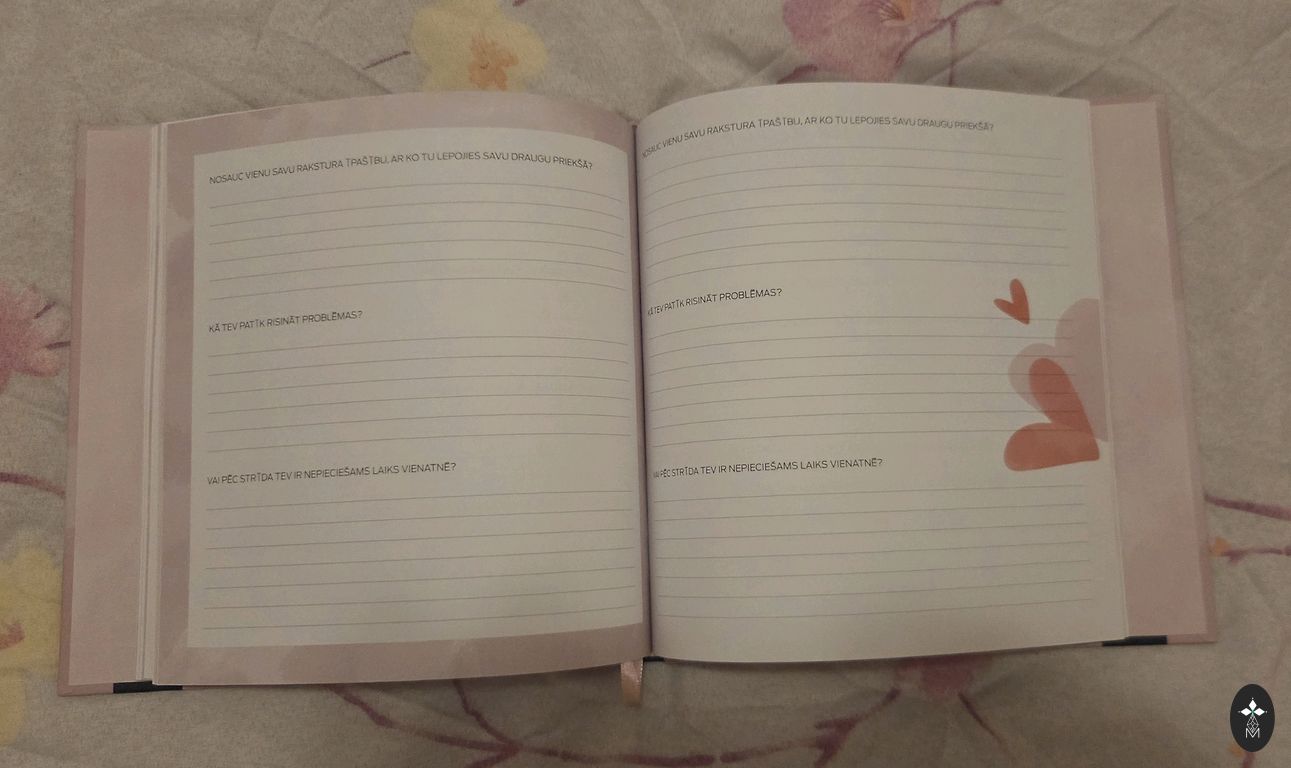 NOSAUC VIENU SAVU RAKSTURA ĪPAŠĪBU, AR KO TU LEPOJIES SAVU DRAUGU PRIEKŠĀ?
KĀ TEV PATĪK RISINĀT PROBLĒMAS?
VAI PĒC STRĪDA TEV IR NEPIECIEŠAMS LAIKS VIENATNĒ?
NOSAUC VIENU SAVU RAKSTURA ĪPAŠĪBU, AR KO TU LEPOJIES SAVU DRAUGU PRIEKŠĀ?
KĀ TEV PATĪK RISINĀT PROBLĒMAS?
VAI PĒC STRĪDA TEV IR NEPIECIEŠAMS LAIKS VIENATNĒ?
M